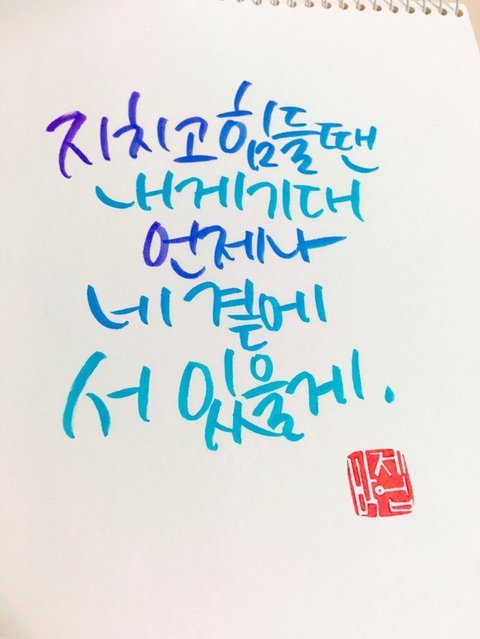 지치고 힘들 땐
내게 기대
언제나
네 곁에
서 있을게.